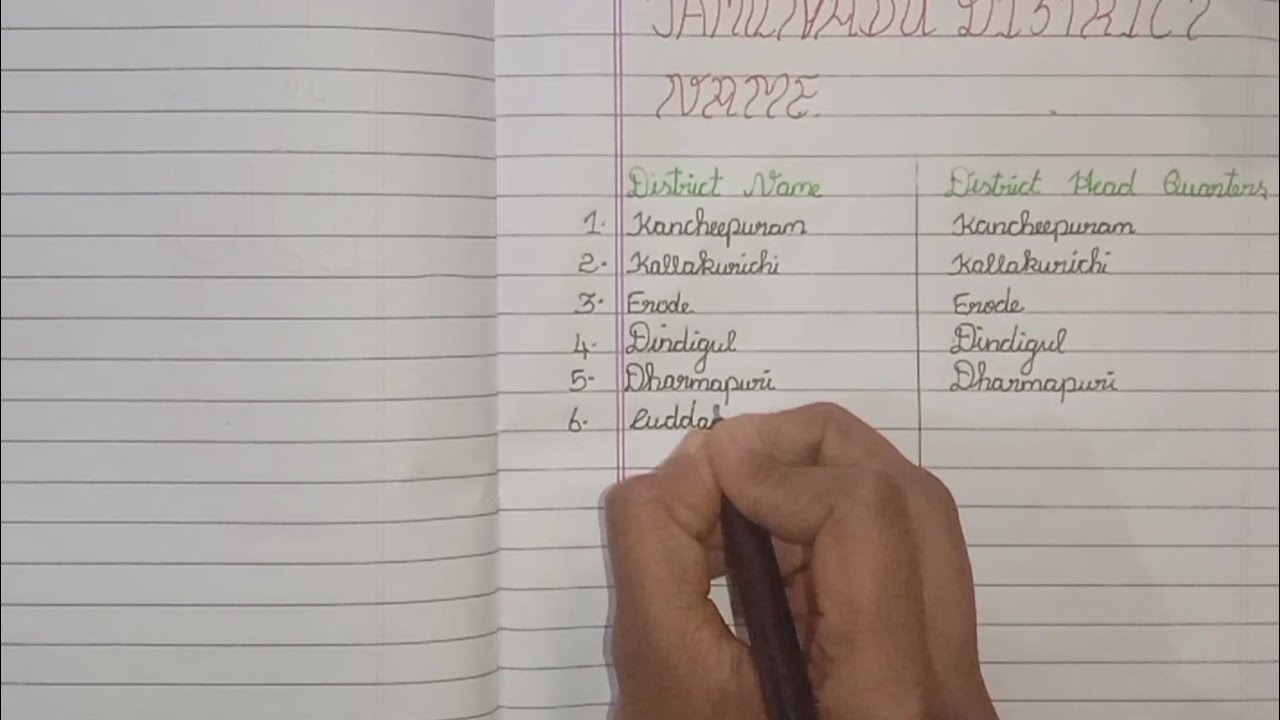 TAMILNADU DISTRICT
NAME.
District Name District Head Quarters
1. Kancheepuram Kancheepuram
2. Kallakurichi Kallakurichi
3. Erode Erode
4. Dindigul Dindigul
5. Dharmapuri Dharmapuri
6. Cuddal